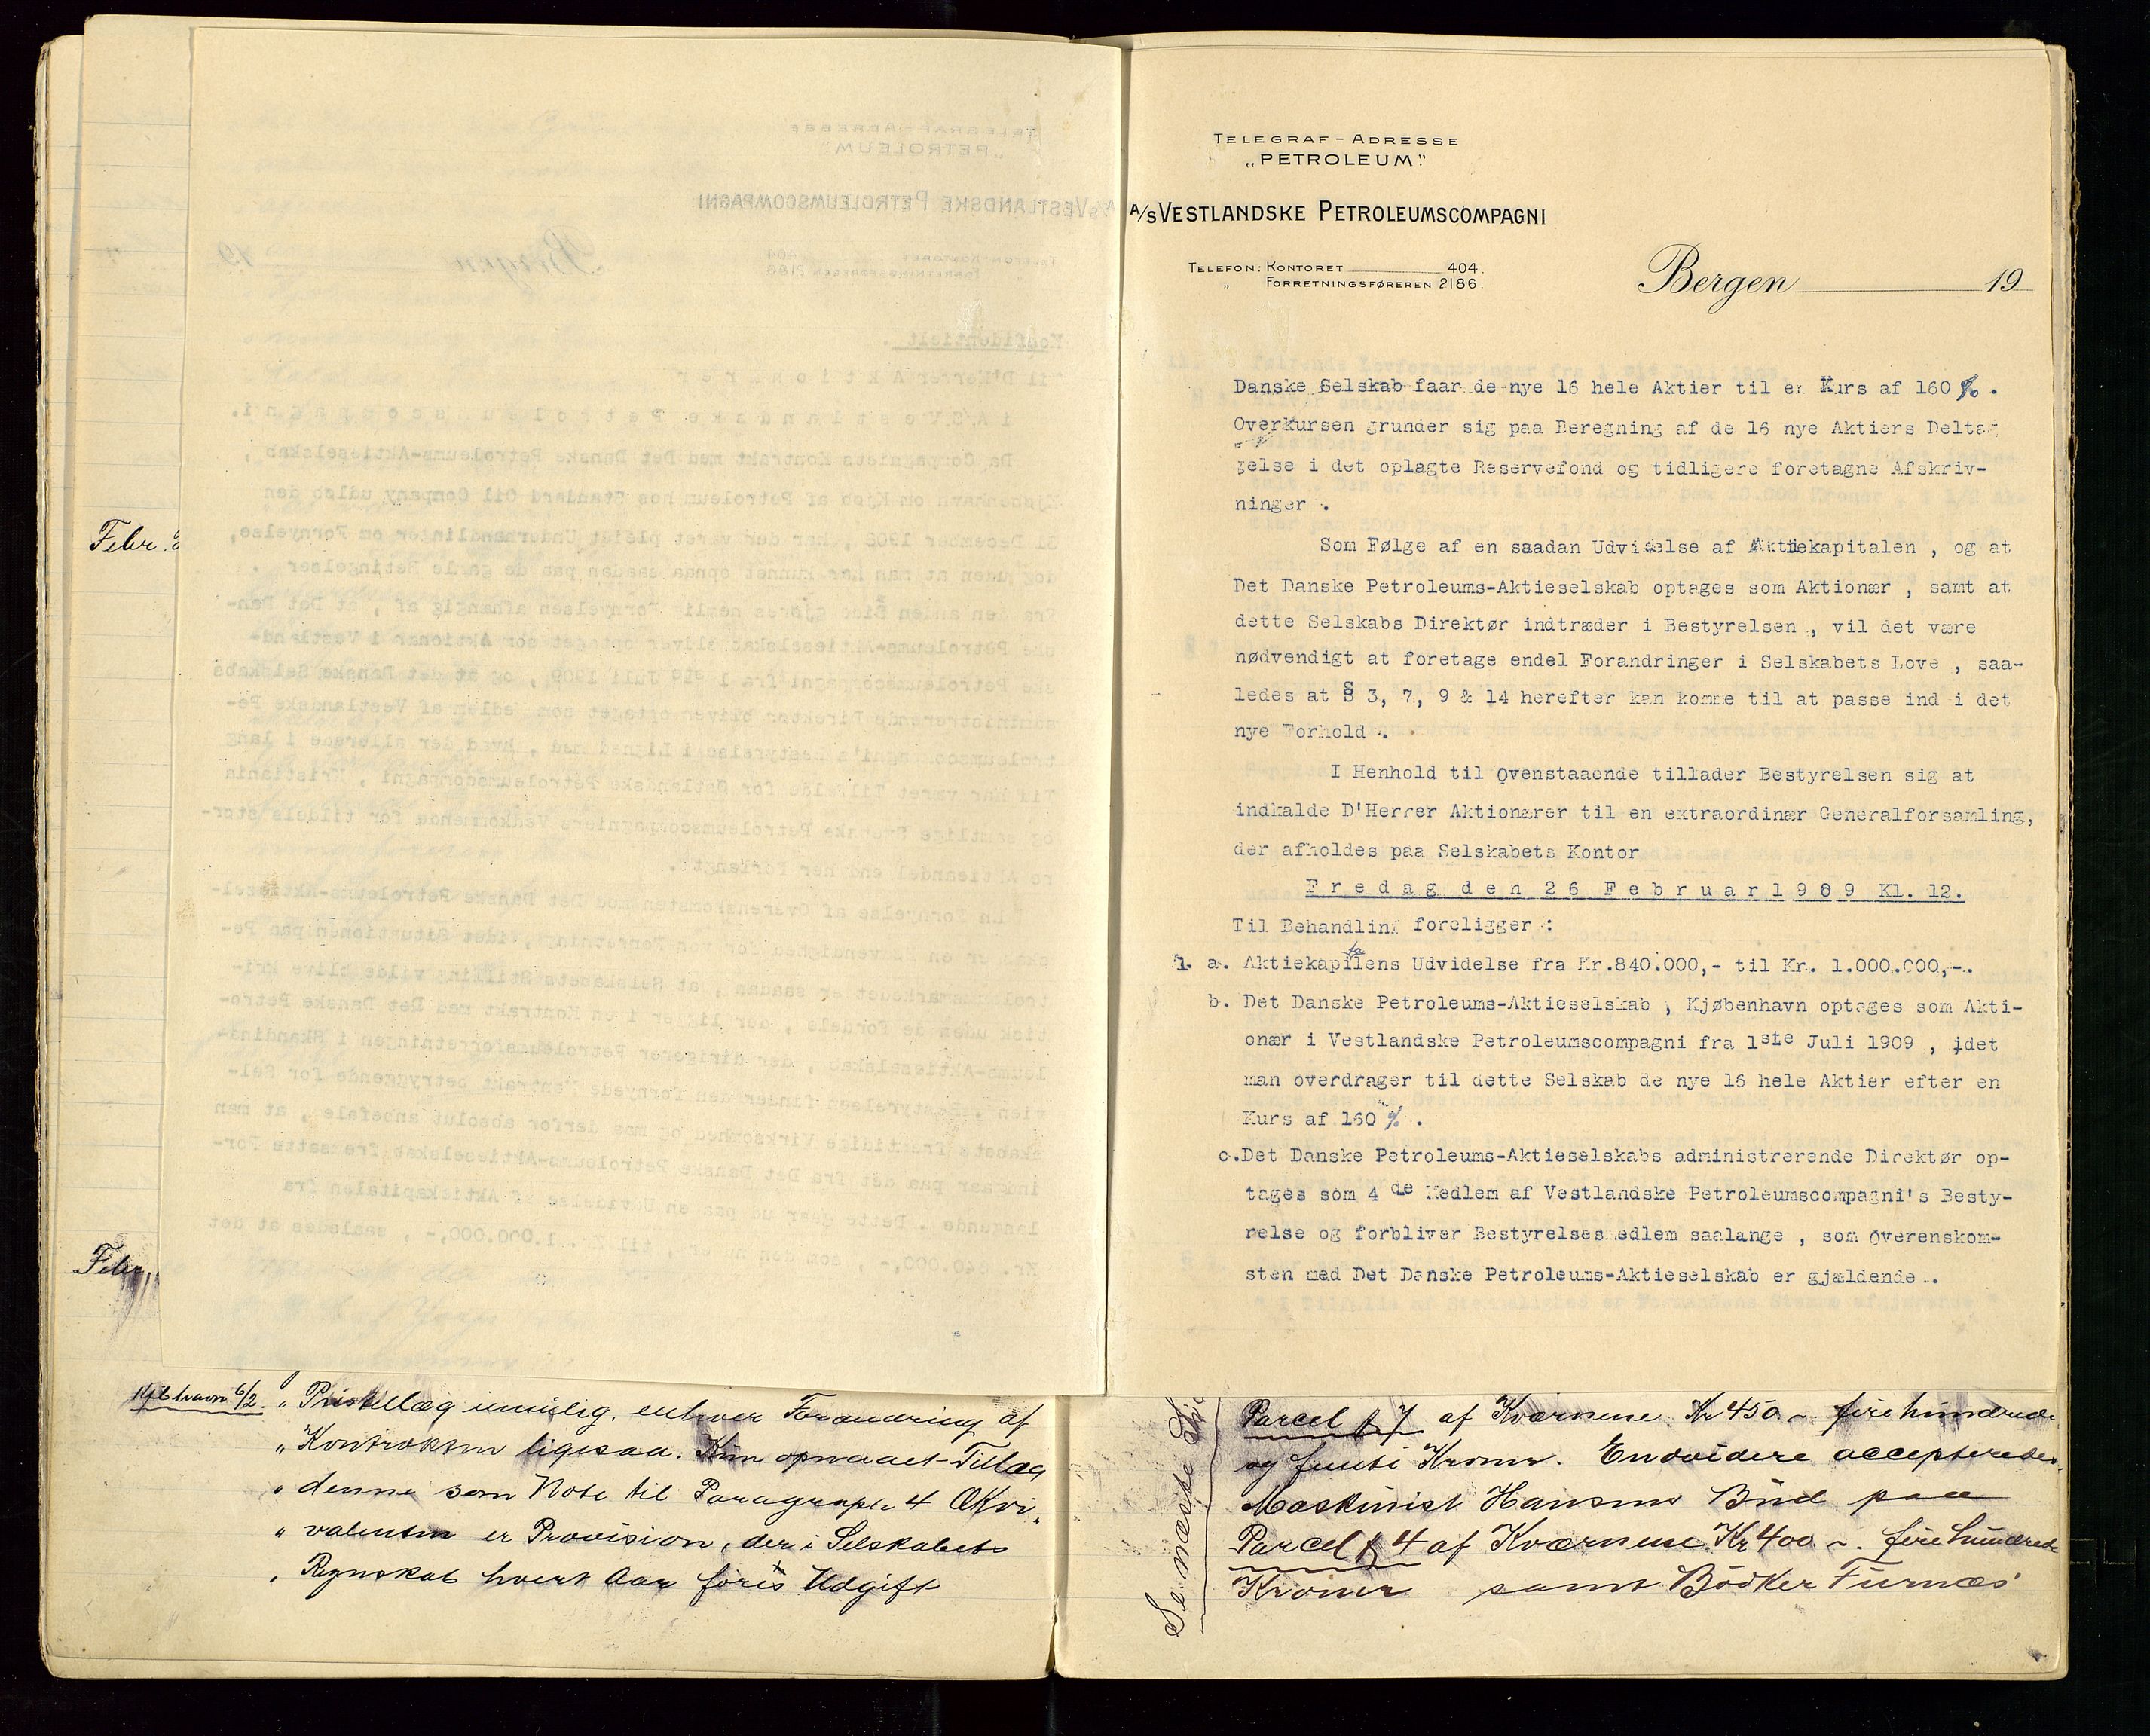 Febr.
Febr.
Kjbhavn 6/2.
„ Pristillæg umulig, enhver Forandring af
„ Kontrakten ligesaa. Kun opnaaet Tillæg
„ denne som Note til Paragraph 4 Ækvi„
„ valenten er Provision, der i Selskabets
„ Regnskab hvert Aar føres Udgift
TELEGRAF-ADRESSE
„PETROLEUM."
A/S VESTLANDSKE PETROLEUMSCOMPAGNI
TELEFON: KONTORET 404.
„ FORRETNINGSFØREREN 2186.
Bergen 19
Danske Selskab faar de nye 16 hele Aktier til en Kurs af 160 %.
Overkursen grunder sig paa Beregning af de 16 nye Aktiers Deltag
gelse i det oplagte Reservefond og tidligere foretagne Afskriv-
ninger .
Som Følge af en saadan Udvidelse af Aktiekapitalen , og at
Det Danske Petroleums-Aktieselskab optages som Aktionær , samt at
dette Selskabs Direktør indtræder i Bestyrelsen , vil det være
nødvendigt at foretage endel Forandringer i Selskabets Love , saa-
ledes at § 3, 7, 9 & 14 herefter kan komme til at passe ind i det
nye Forhold .
I Henhold til Ovenstaaende tillader Bestyrelsen sig at
indkalde D'Herrer Aktionærer til en extraordinær Generalforsamling,
der afholdes paa Selskabets Kontor
Fredag den 26 Februar 1909 Kl. 12.
Til Behandling foreligger :
1. a. Aktiekapitalens Udvidelse fra Kr.840.000,- til Kr. 1.000.000,-.
b. Det Danske Petroleums-Aktieselskab , Kjøbenhavn optages som Akti-
onær i Vestlandske Petroleumscompagni fra 1ste Juli 1909 , idet
man overdrager til dette Selskab de nye 16 hele Aktier efter en
Kurs af 160 % .
c. Det Danske Petroleums-Aktieselskabs administrerende Direktør op-
tages som 4 de Medlem af Vestlandske Petroleumscompagni's Besty-
relse og forbliver Bestyrelsesmedlem saalange , som Overenskom-
sten med Det Danske Petroleums-Aktieselskab er gjældende .
Se næste
Parcel № 7 af Kværnene Kr 450.~ fire hundrede
og femti Kroner. Endvidere accepteredes
Maskinist Hansens Bud paa
Parcel № 4 af Kværnene Kr 400.~. fire hundrede
Kroner samt Bödker Furnæs